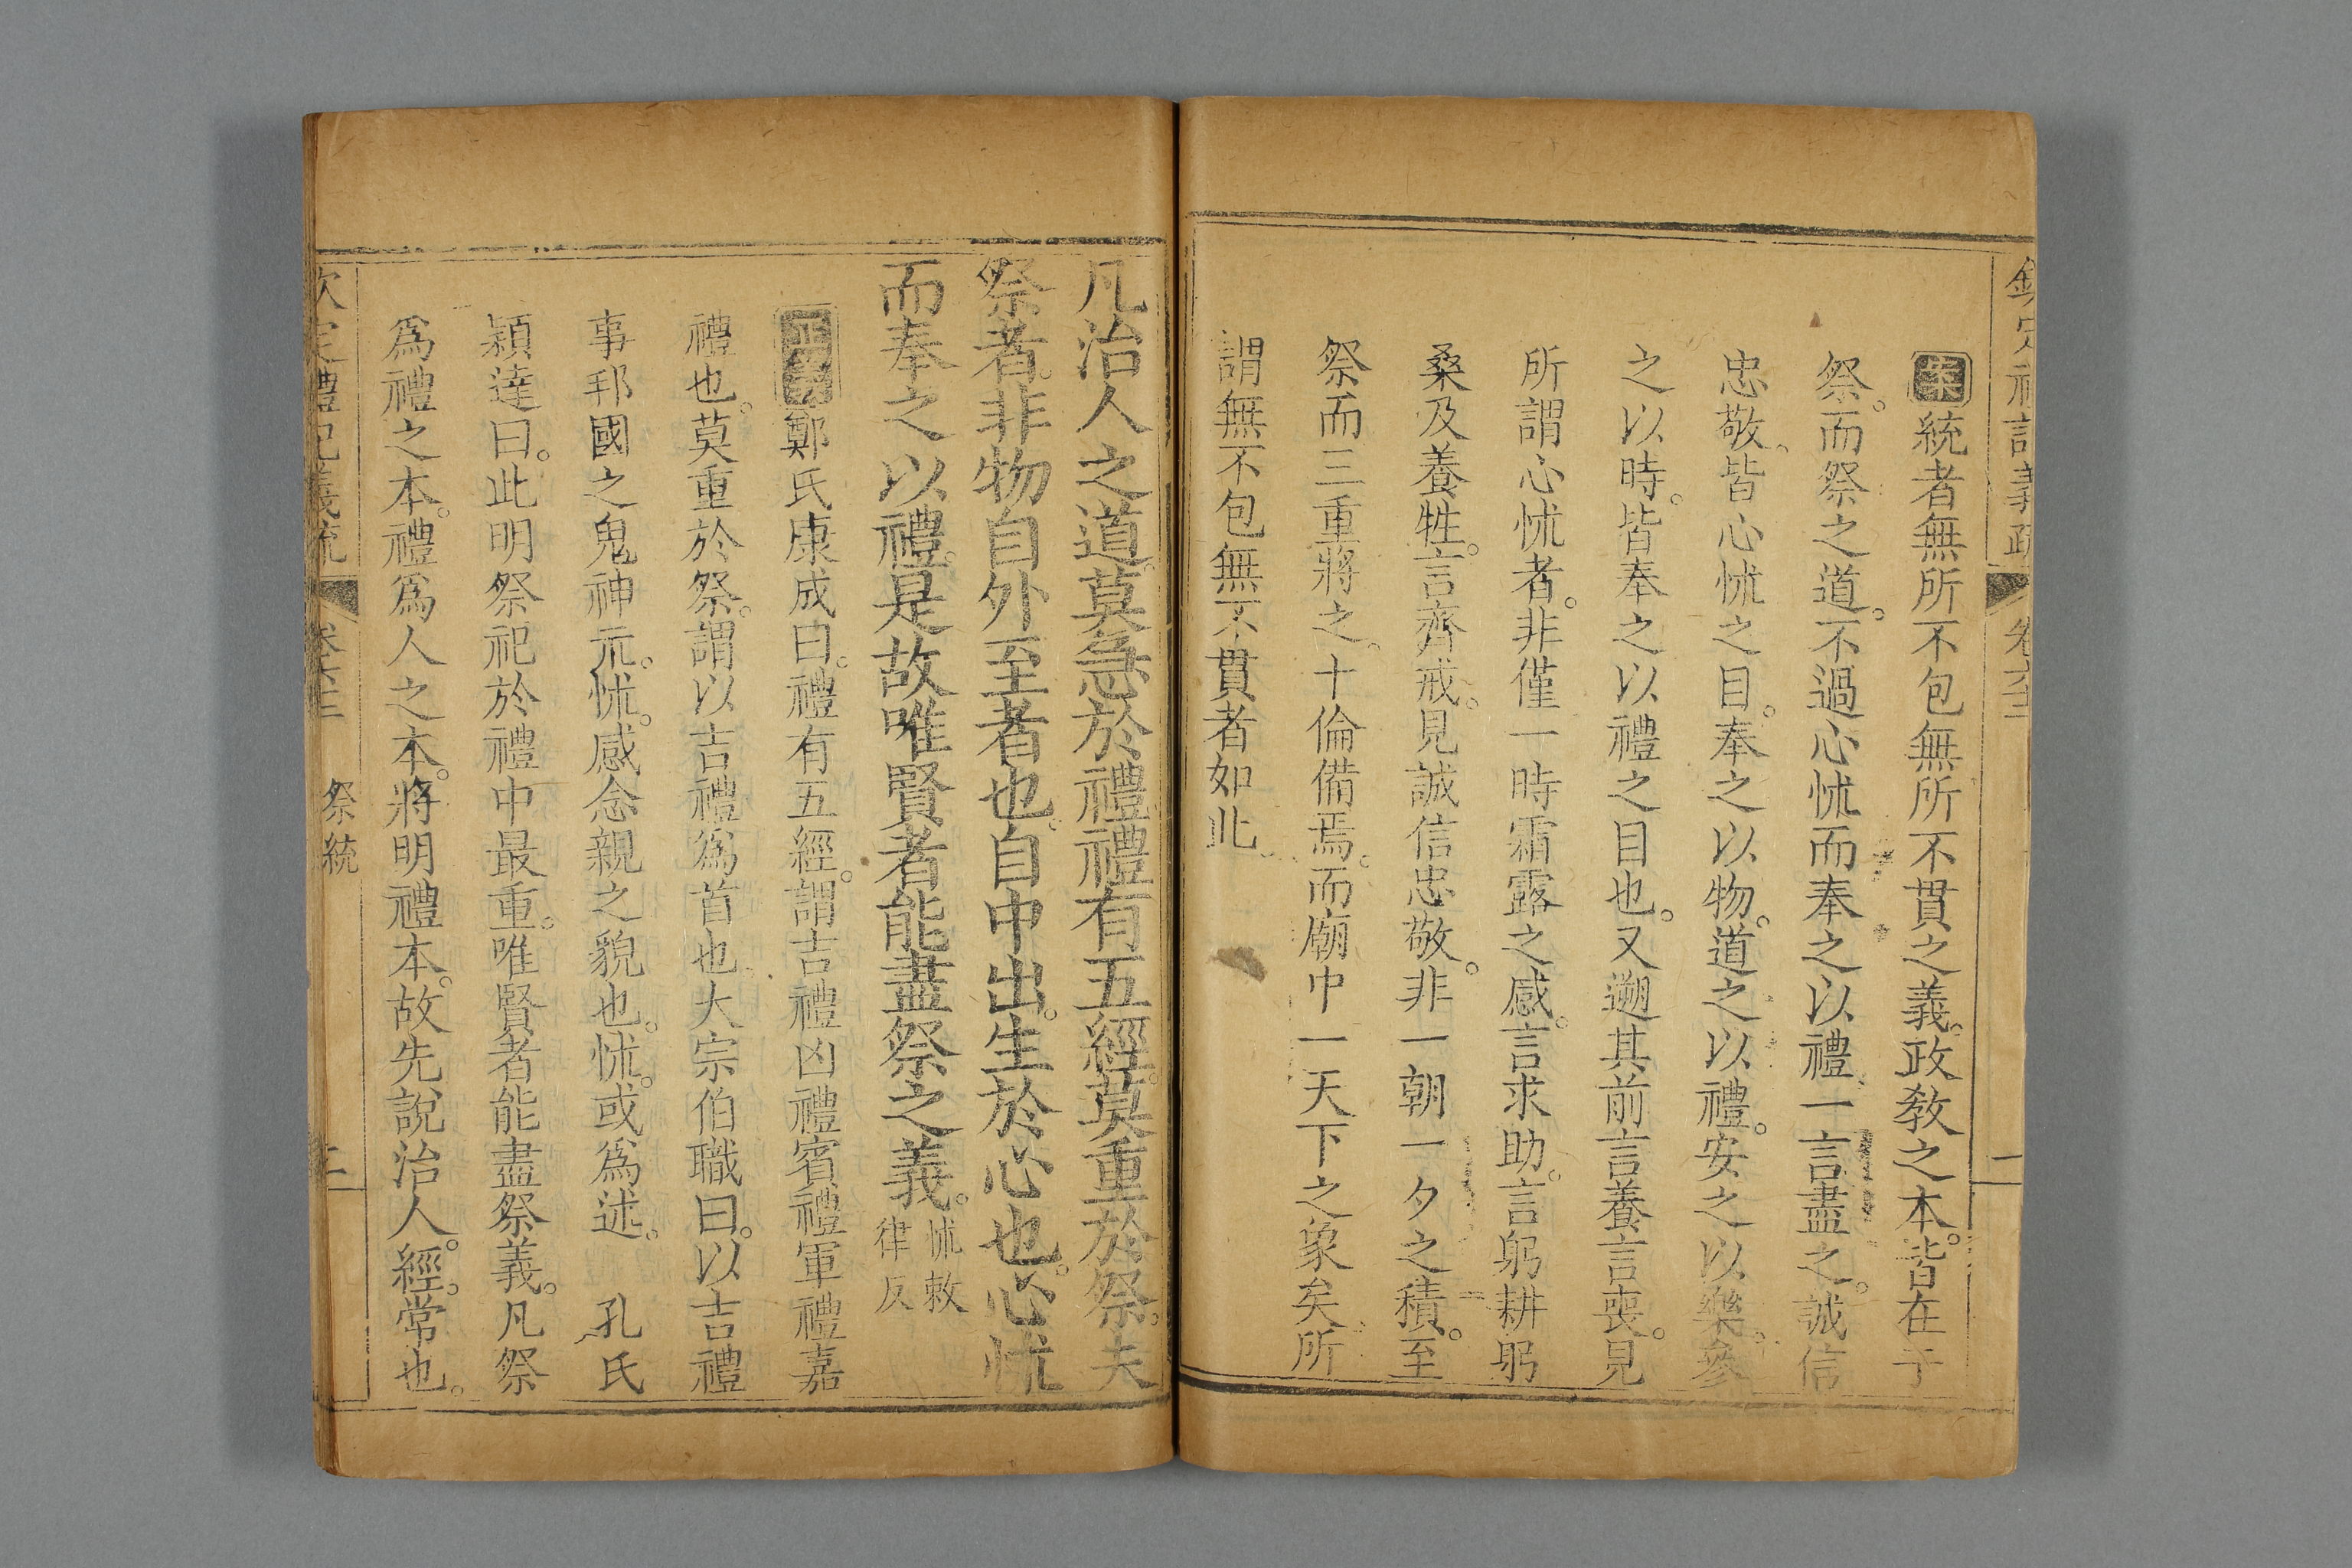 欽定禮記義疏 卷六十二 二
案統者無所不包無所不貫之義。政教之本。皆在于
祭。而祭之道。不過心怵而奉之以禮一言盡之。誠信
忠敬。皆心怵之目。奉之以物。道之以禮。安之以樂。參
之以時。皆奉之以禮之目也。又遡其前言養言喪。見
所謂心怵者。非僅一時霜露之感。言求助。言躬耕躬
桑及養牲。言齊戒。見誠信忠敬。非一朝一夕之積。至
祭而三重將之。十倫備焉。而廟中一天下之象矣所
謂無不包無不貫者如此
凡治人之道。莫急於禮禮有五經。莫重於祭。夫
祭者。非物自外至者也。自中出。生於心也。心怵
而奉之以禮。是故唯賢者能盡祭之義。怵敕律反
正義鄭氏康成曰。禮有五經。謂吉禮凶禮賓禮軍禮嘉
禮也。莫重於祭。謂以吉禮爲首也。大宗伯職曰。以吉禮
事邦國之鬼神示。怵。感念親之貌也。怵。或爲述。 孔氏
穎達曰。此明祭祀於禮中最重。唯賢者能盡祭義。凡祭
爲禮之本。禮爲人之本。將明禮本。故先說治人。經。常也。
欽定禮記義疏 卷六十二 祭統 二